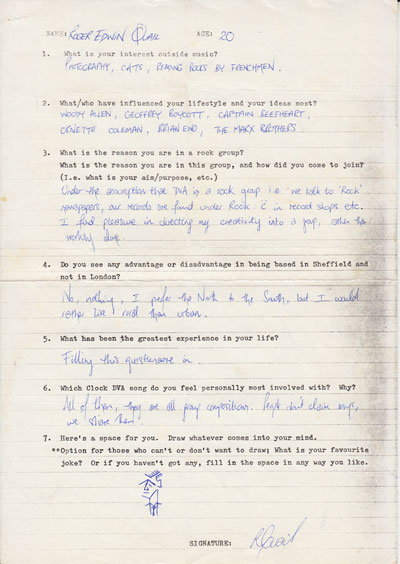 NAME: ROGER EDWIN QUAIL AGE: 20
1. What is your interest outside music?
PHOTOGRAPHY, CATS, READING BOOKS BY FRENCHMEN.
2. What/who have influenced your lifestyle and your ideas most?
WOODY ALLEN, GEOFFREY BOYCOTT, CAPTAIN BEEFHEART,
ORNETTE COLEMAN, BRIAN ENO, THE MARX BROTHERS.
3. What is the reason you are in a rock group?
What is the reason you are in this group, and how did you come to join?
(I.e. what is your aim/purpose, etc.)
Under the assumption that DVA is a rock group i.e. we talk to 'Rock'
newspapers, our records are found under Rock : C in record shops etc.
I find pleasure in directing my creativity into a group, rather than
working alone.
4. Do you see any advantage or disadvantage in being based in Sheffield and
not in London?
No, nothing, I prefer the North to the South, but I would
rather live rural than urban.
5. What has been the greatest experience in your life?
Filling this questionnaire in.
6. Which Clock DVA song do you feel personally most involved with? Why?
All of them, they are all group compositions. People don't claim songs,
we share them.
7. Here's a space for you. Draw whatever comes into your mind.
**Option for those who can't or don't want to draw; What is your favourite
joke? Or if you haven't got any, fill in the space in any way you like.
SIGNATURE: R Quail